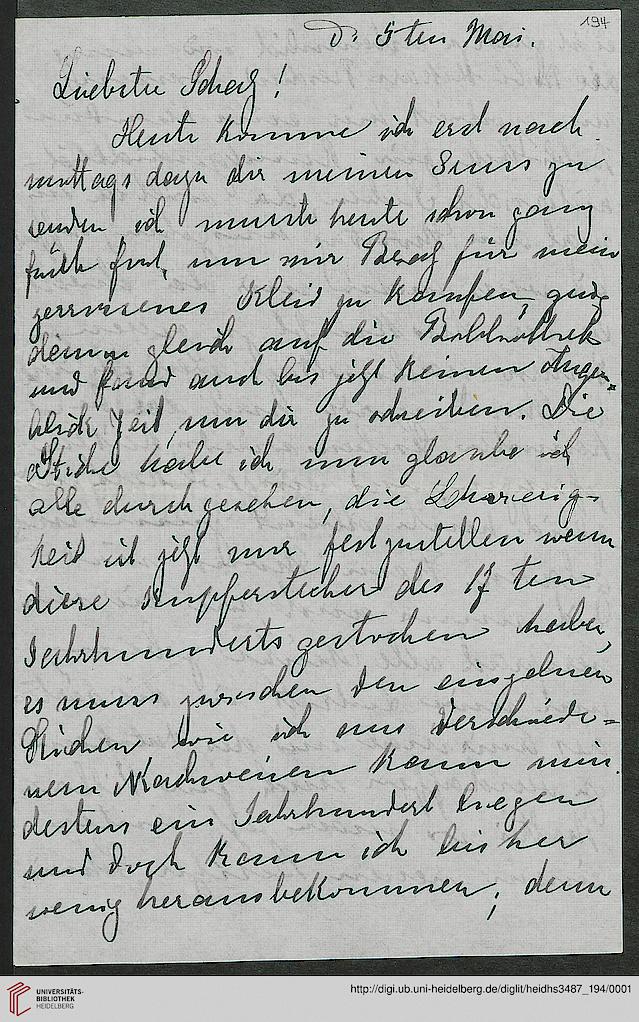 194
D. 5ten Mai.
Liebster Schatz!
Heute komme ich erst nach
mittags dazu dir meinen Gruss zu
senden ich musste heute schon ganz
früh fort, um mir Besatz für mein
zerrissenes Kleid zu kaufen, ging
dann gleich auf die Bibliothek
und fand auch bis jetzt keinen Augen-
blick Zeit, um dir zu schreiben. Die
Stiche habe ich nun glaube ich
alle durchgesehen, die Schwierig-
keit ist jetzt nur festzustellen wenn
diese Kupferstecher des 17 ten
Jahrhunderts gestochen haben,
es muss zwischen den einzelnen
Stichen wie ich aus verschiede=
nem Nachweisen kann min
destens ein Jahrhundert liegen
und doch kann ich bis her
wenig herausbekommen, denn
UNIVERSITÄTS-
BIBLIOTHEK
HEIDELBERG
http://digi.ub.uni-heidelberg.de/diglit/heidhs3487_194/0001